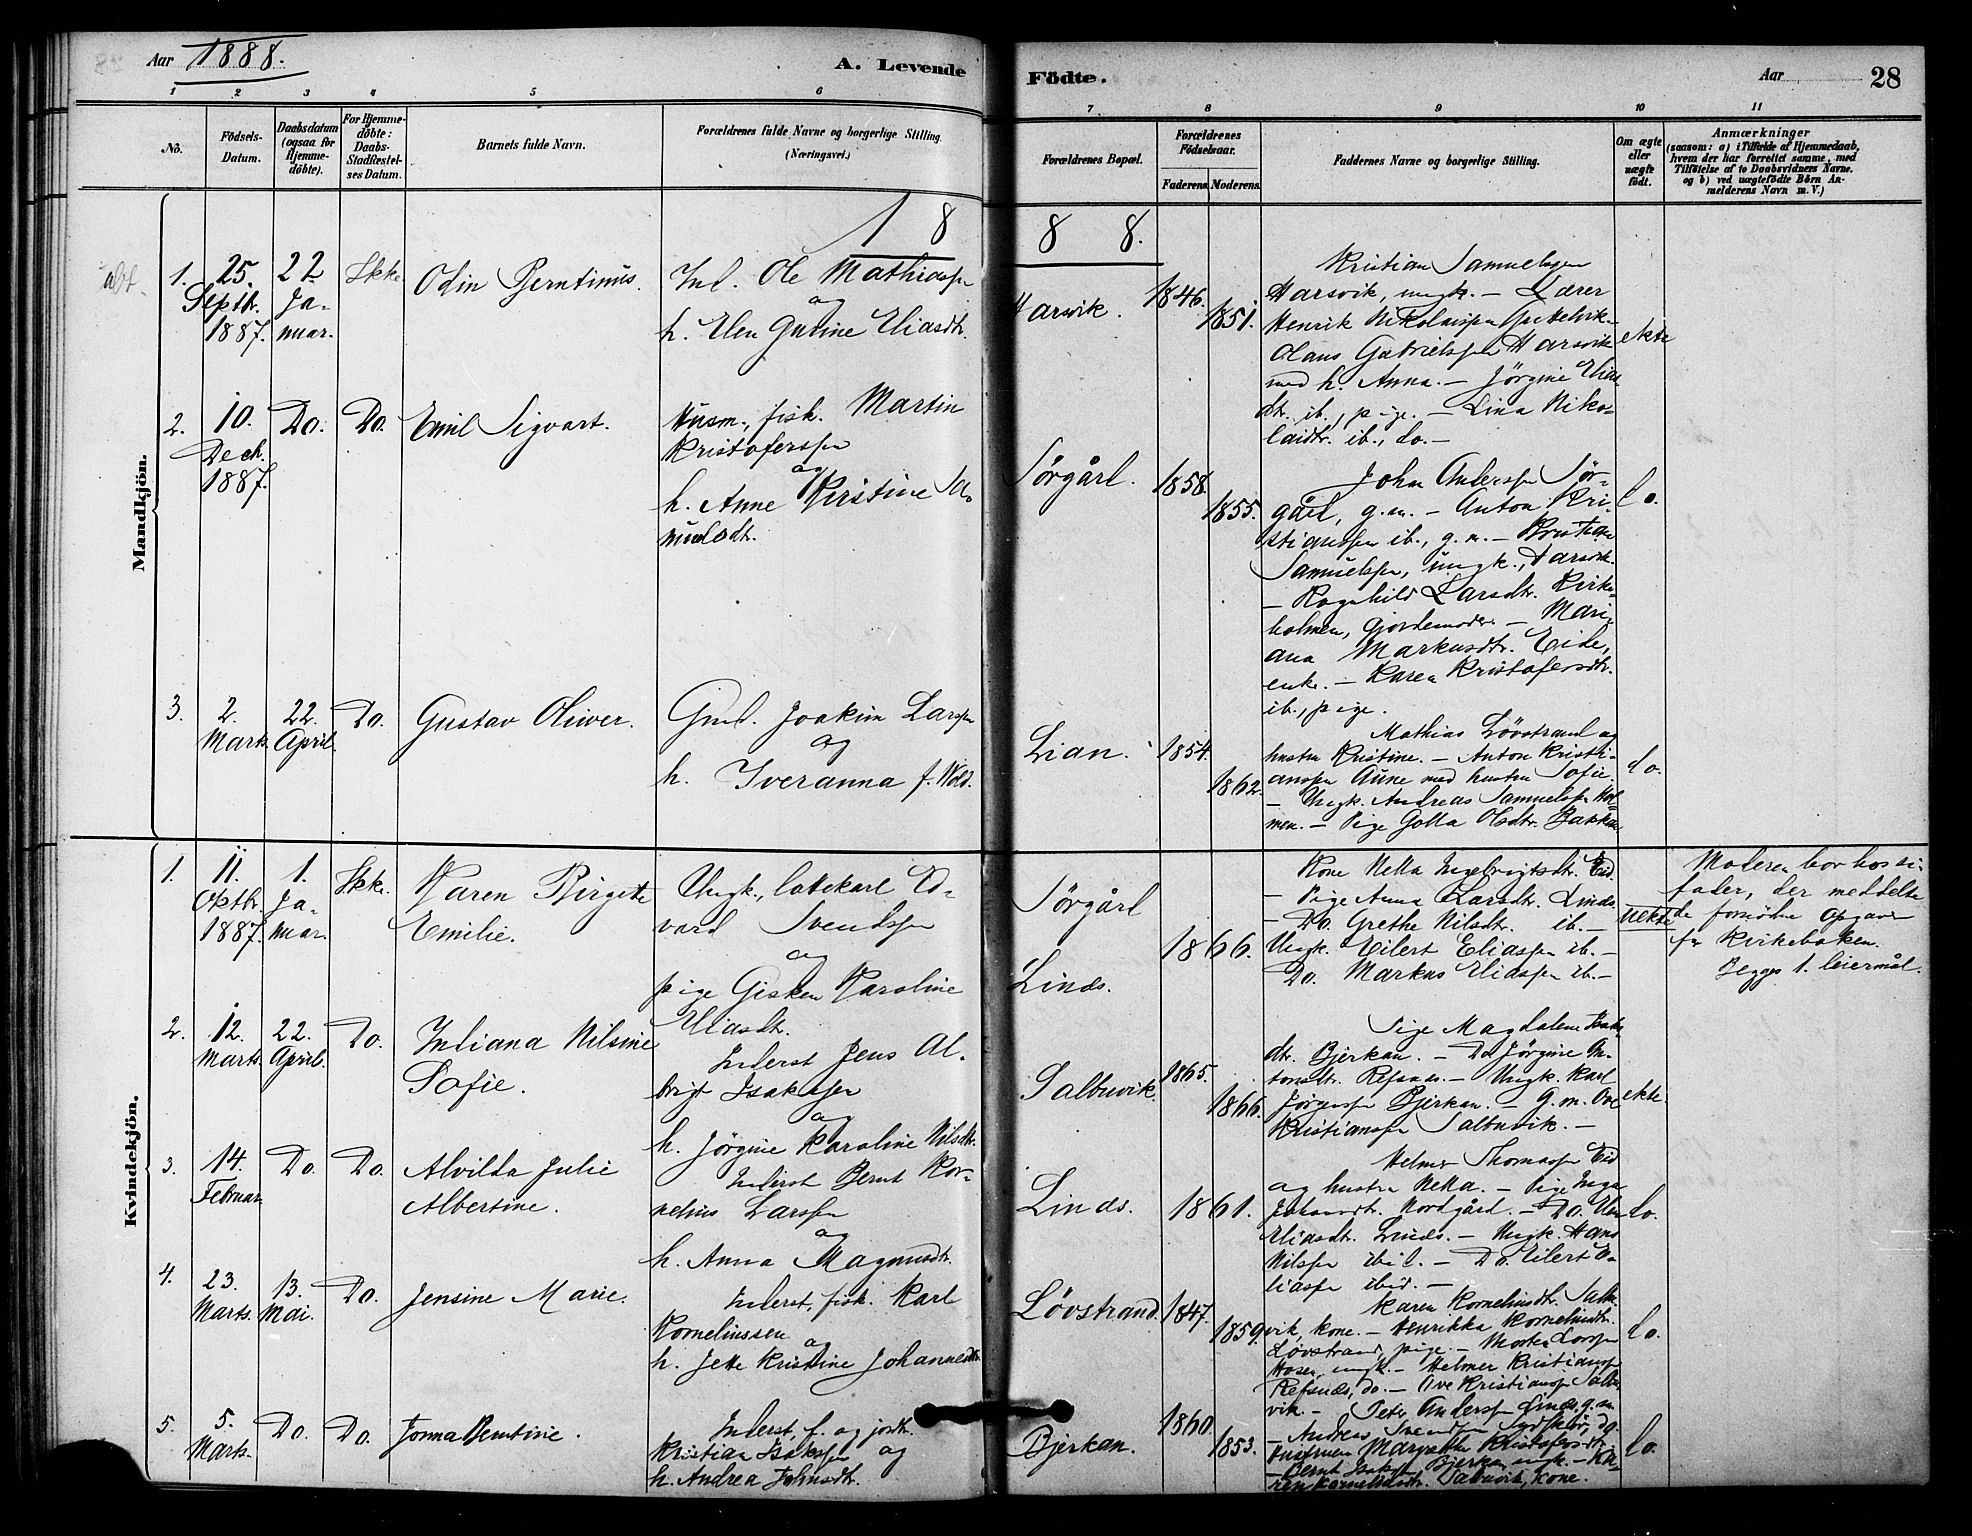 Aar 1888.
A. Levende Födte.
Aar
28
1 2 3 4 5 6 7 8 9 10 11
No.
Födsels-
Datum.
Daabsdatum
(ogsaa for
Hjemme-
döbte).
For Hjemme-
döbte:
Daabs-
Stadfæstel-
ses Datum.
Barnets fulde Navn.
Forældrenes fulde Navne og borgerlige Stilling.
(Næringsvei.)
Forældrenes Bopæl.
Forældrenes
Födselsaar.
Faderens. Moderens.
Faddernes Navne og borgerlige Stilling.
Om ægte
eller
uægte
födt.
Anmærkninger
(saasom: a) i Tilfælde af Hjemmedaab,
hvem der har forrettet samme, med
Tilföielse af to Daabsvidners Navne.
og b) ved uægtefödte Börn An-
melderens Navn m. V.)
1 8 8 8.
Mandkjön.
1.
25.
Septbr.
1887.
22
Ja-
nuar.
Ikke
Odin Berntinus.
Ind. Ole Mathiassen
og
h. Elen Gurine Eliasdtr.
Harsvik.
1846.
1851.
Kristian Samuelsen
Harsvik, ungk. — Lærer
Henrik Nikolaissen
Olaus Gabrielssen Harsvik
med h. Anna. — Jørgine Elias
dtr. ib., pige. — Lina Niko-
laidtr. ib., do. —
ekte
2.
10.
Dech.
1887.
Do. Do.
Emil Sigvart.
Husm., fisk. Martin
Kristoferssen
og
h. Anne Kirstine Sa-
muelsdtr.
Sørgård.
1858.
1855.
John Anderssen Sør-
gård, g.m. — Anton Kri-
stianssen ib., g.m. — Kristian
Samuelssen, ungk., Harsvik.
— Ragnhild Larsdtr. Kirke-
holmen, gjordemoder — Mari-
ana Markusdtr. Eide,
enke. — Karen Kristofersdtr.
ib., pige.
do.
3.
2.
Marts.
22.
April.
Do.
Gustav Oliver.
Gmd. Joakim Larssen
og
h. Iveranna f. Wold.
Lian.
1854.
1862.
Mathias Løvstrand og
hustru Kristine. — Anton Kristi-
anssen Aune med hustru Sofie.
— Ungk. Andreas Samuelssen Hol-
men. — Pige Golla Olsdtr. Bakkan
do.
Kvindekjön.
1.
11.
Oktbr.
1887.
1.
Ja-
nuar.
Ikke.
Karen Birgete
Emilie.
Ungk., løskarl Ed-
vard Svendsen
og
pige Gisken Karoline
Eliasdtr.
Sørgård
Linds.
1866.
Kone Nella Ingebrigtsdtr. Eid.
— Pige Anna Larsdtr. Linds.
— Do. Grethe Nilsdtr. ib. —
Ungk. Eilert Eliassen ib. —
Do. Markus Eliassen ib. —
uekte
Moderen bor hos si
fader, der meddelte
de fornødne opgaver
for kirkeboken.
Begges 1. leiermål.
2.
12.
Marts.
22.
April.
Do.
Juliana Nilsine
Sofie.
Inderst Jens Al-
brigt Isaksen
og
h. Jørgine Karoline Nilsdtr.
Salbuvik.
1865.
1866.
Pige Magdalena Isaks
dtr. Bjerkan. — Do. Jørgine An-
tonsdtr. Refsnes. — Ungk. Karl
Jørgenssen Bjerkan. — g.m. Ove
Kristianssen Salbuvik. —
ekte.
3.
14.
Februar.
Do. Do.
Alvilda Julie
Albertine.
Inderst Bernt Kor-
nelius Larssen
og
h. Anna Magnusdtr.
Linds.
1861.
Helmer Thomassen Eid
og hustru Nella. — Pige Inga
Johansdtr. Nordgård. — Do. Elen
Eliasdtr. Linds. — Ungk. Hans
Nilssen ibid. — Do. Eilert E-
liassen ibid. —
do.
4.
23.
Marts.
13.
Mai.
Do.
Jensine Marie.
Inderst, fisk. Karl
Korneliussen
og
h. Jette Kristine Johannesdtr.
Løvstrand
1847.
1859.
Karen Korneliusdtr. Salbu-
vik, kone. — Henrikka Korneliusdtr.
Løvstrand, pige. — Morten Larssen
Hosen, ungk. — Helmer Kristianssen
Refsnes, do. — Ove Kristianssen Salbu
vik. —
do.
5.
5.
Marts.
Do. Do.
Jonna Berntine.
Inderst, f. og jordb.
Kristian Isaksen og
h. Andrea Johnsdtr.
Bjerkan.
1860.
1853.
Peter Anderssen Linds, g.m.
— Andreas Svendsen og
hustruen Margrethe Kristofersdtr.
— Bernt Isaksen Bjerkan ungk. — Ka-
ren Korneliusdtr. Salbuvik, kone.
do.